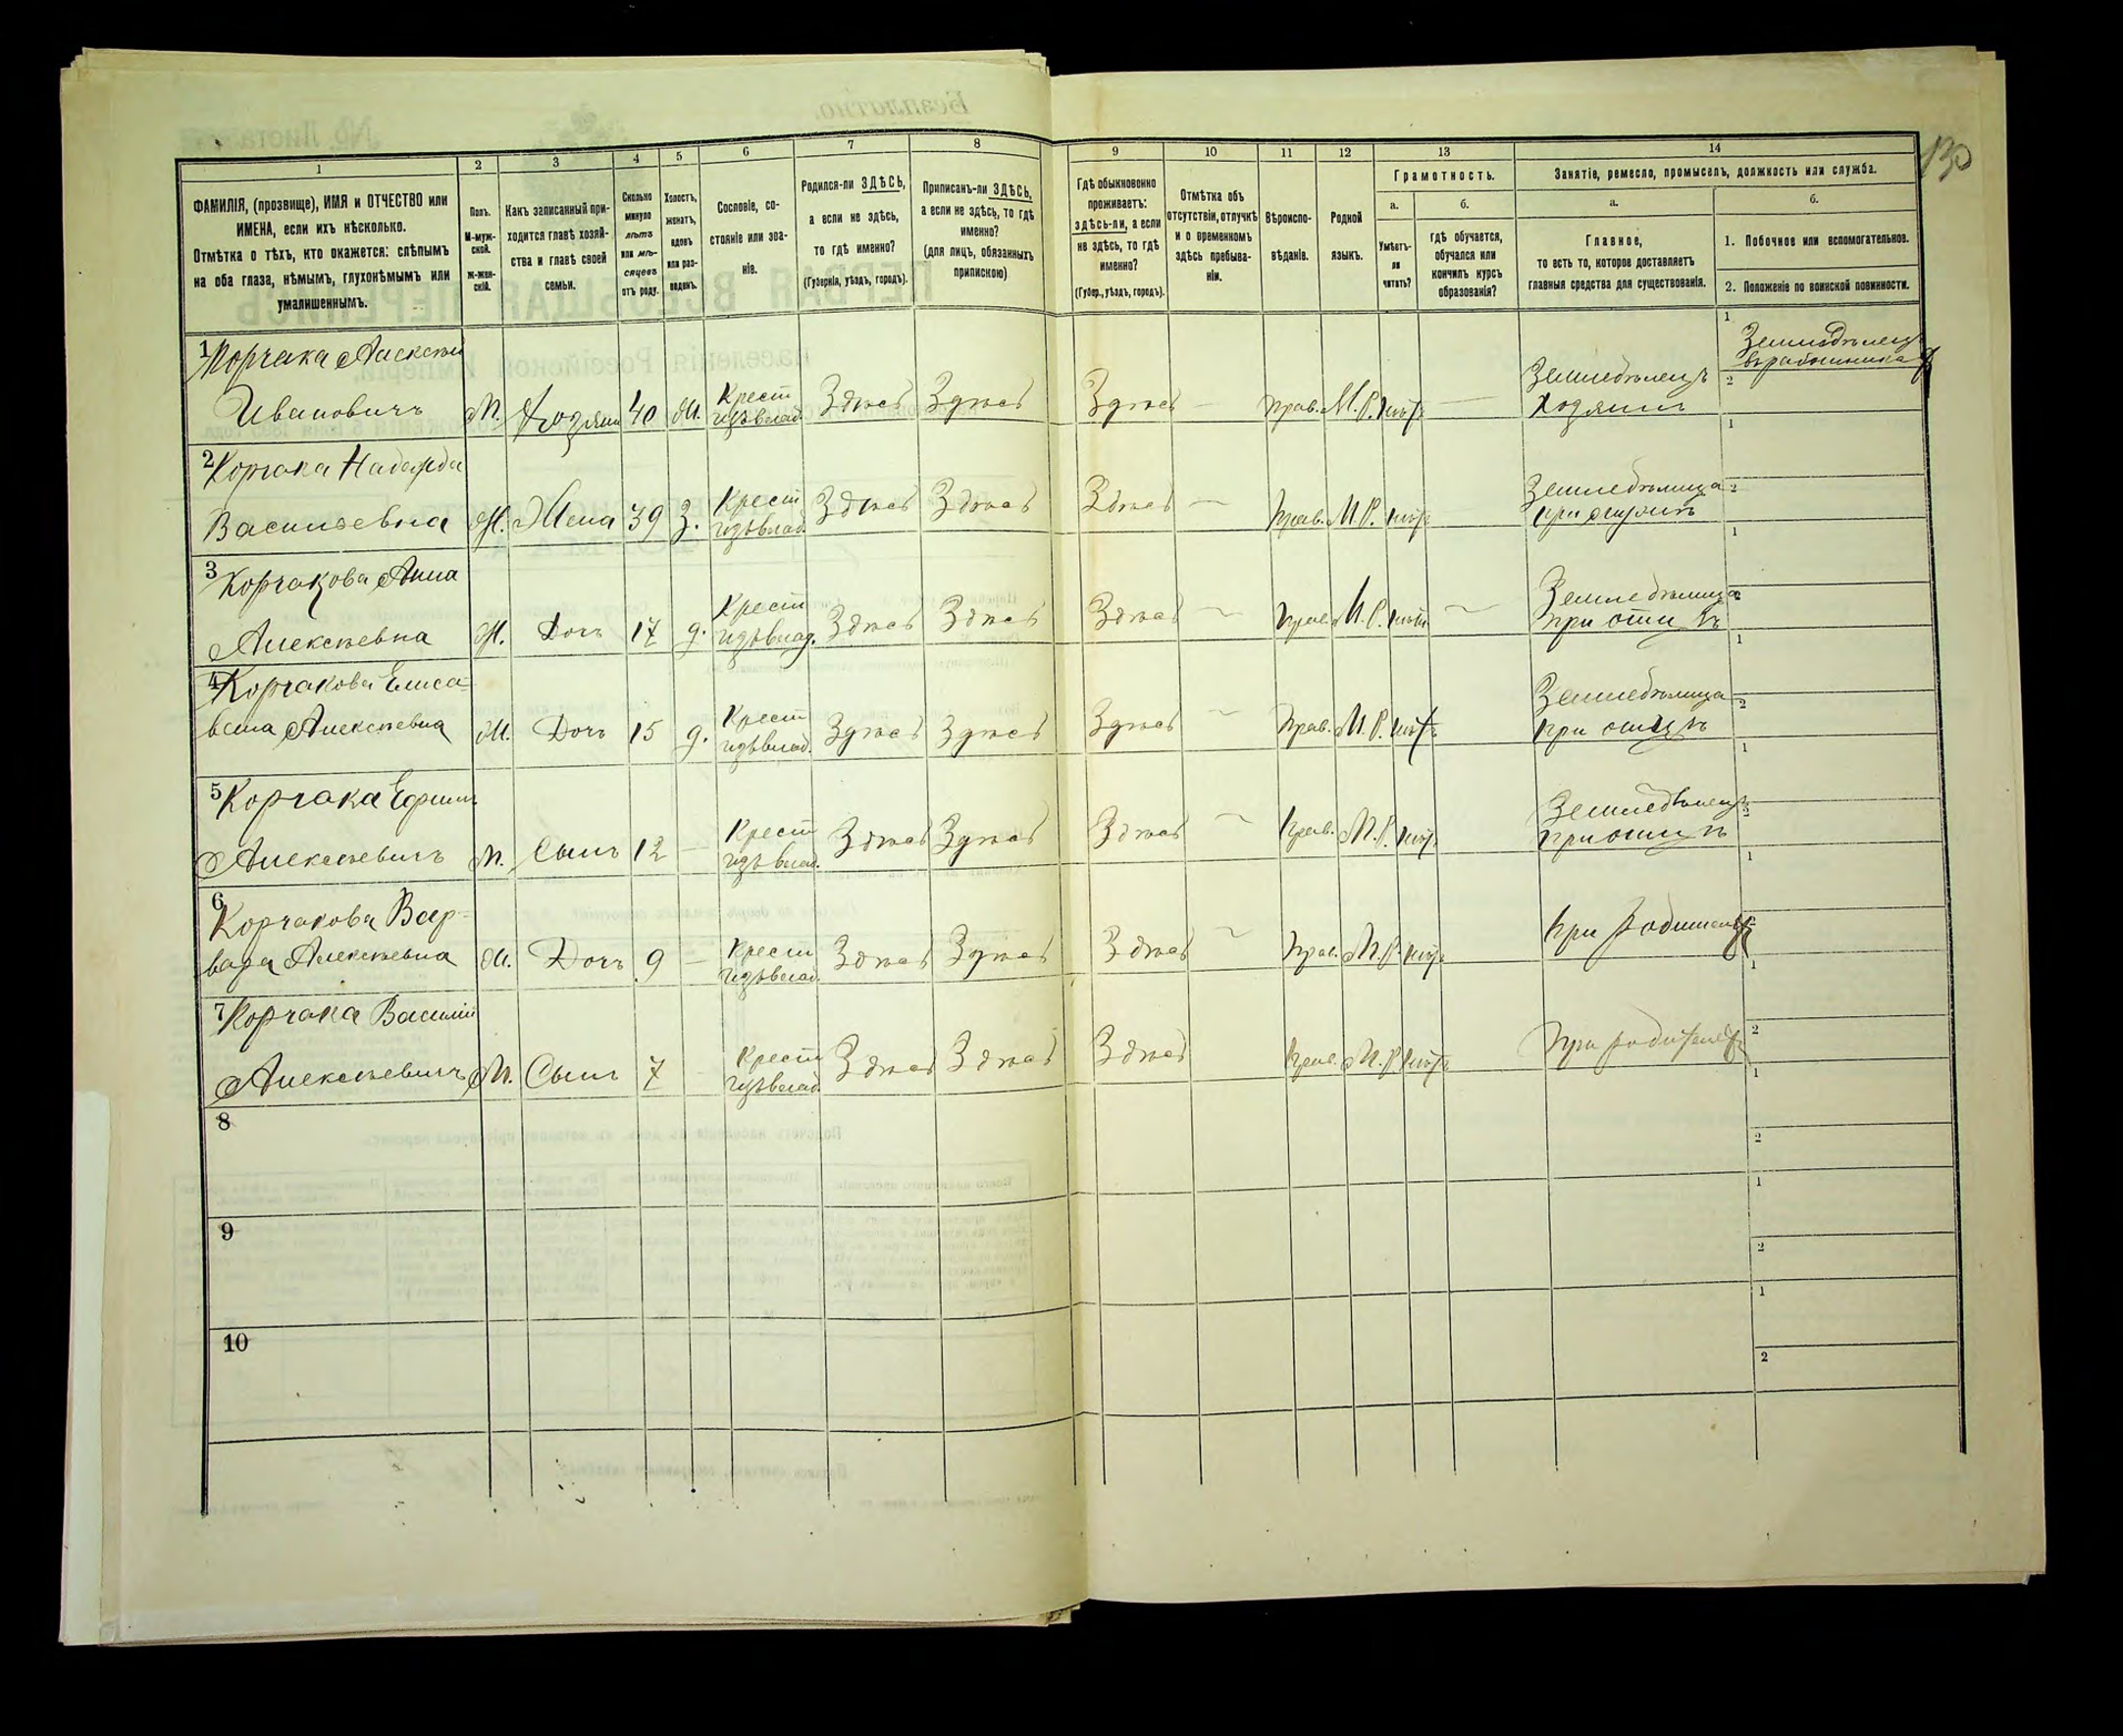 130
1 2 3 4 5 6 7 8 9 10 11 12 13 14
ФАМИЛІЯ, (прозвище), ИМЯ и ОТЧЕСТВО или
ИМЕНА, если ихъ нѣсколько.
Отмѣтка о тѣхъ, кто окажется: слѣпымъ
на оба глаза, нѣмымъ, глухонѣмымъ или
умалишеннымъ.
Полъ.
М-муж-
ской.
Ж-жен-
скій.
Какъ записанный при-
ходится главѣ хозяй-
ства и главѣ своей
семьи.
Сколько
минуло
лѣтъ
или мѣ-
сяцевъ
отъ роду.
Холостъ,
женатъ,
вдовъ
или раз-
веденъ.
Сословіе, со-
стояніе или зва-
ніе.
Родился-ли ЗДѢСЬ,
а если не здѣсь,
то гдѣ именно?
(Губернія, уѣздъ, городъ).
Приписанъ-ли ЗДѢСЬ,
а если не здѣсь, то гдѣ
именно?
(для лицъ, обязанныхъ
припискою)
Гдѣ обыкновенно
проживаетъ:
здѣсь-ли, а если
не здѣсь, то гдѣ
именно?
(Губер., уѣздъ, городъ).
Отмѣтка объ
отсутствіи, отлучкѣ
и о временномъ
здѣсь пребыва-
ніи.
Вѣроиспо-
вѣданіе.
Родной
языкъ.
Грамотность.
а. б.
Умѣетъ-
ли
читать?
гдѣ обучается,
обучался или
кончилъ курсъ
образованія?
Занятіе, ремесло, промыселъ, должность или служба.
а. б.
Главное,
то есть то, которое доставляетъ
главныя средства для существованія.
1. Побочное или вспомогательное.
2. Положеніе по воинской повинности.
1 Корчака Алексѣй
Ивановичъ М. Хозяинъ 40 Ж. Крест Здѣсь Здѣсь Здѣсь — Прав. М.Р. нѣтъ — Земледѣлецъ
хозяинъ
1 Земледѣлецъ
2
2 Корчака Надежда
Васильевна Ж. Жена 39 З. Крест Здѣсь Здѣсь Здѣсь — Прав. М.Р. нѣтъ Земледѣлица
1
2
3 Корчакова Анна
Алексѣевна Ж. Дочь 17 д. Крест Здѣсь Здѣсь Здѣсь — Прав. М.Р. нѣтъ — Земледѣлица
при отцѣ
1
2
4 Корчакова Елиса-
вета Алексѣевна Ж. Дочь 15 д. Крест Здѣсь Здѣсь Здѣсь — Прав. М.Р. нѣтъ Земледѣлица
при отцѣ
1
2
5 Корчака Ефимъ
Алексѣевичъ М. Сынъ 12 — Крест Здѣсь Здѣсь Здѣсь — Прав. М.Р. нѣтъ Земледѣлецъ
при отцѣ
1
2
6 Корчакова Вар-
вара Алексѣевна Ж. Дочь 9 — Крест Здѣсь Здѣсь Здѣсь — Прав. М.Р. нѣтъ При родителяхъ
1
2
7 Корчака Василій
Алексѣевичъ М. Сынъ 7 Крест Здѣсь Здѣсь Здѣсь Прав. М.Р. нѣтъ При родителяхъ
1
2
8
1
2
9
1
2
10
1
2